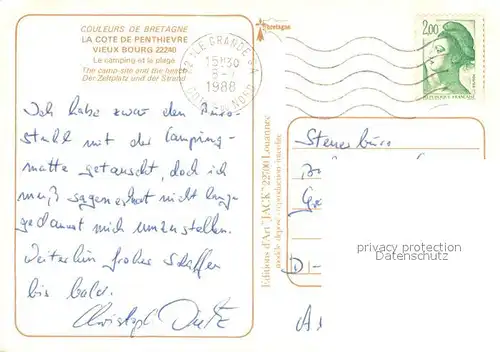 COULEURS DE BRETAGNE
LA COTE DE PENTHIEVRE
VIEUX BOURG 22240
Le camping et la plage
The camp-site and the beach
Der Zeltplatz und der Strand
bretagne
22 ILE GRANDE
15H30
8-7
1988
COTES DU NORD
2,00
REPUBLIQUE FRANÇAISE
Ich habe zwar den Büro-
stuhl mit der Camping-
matte getauscht, doch ich
muß sagen es hat nicht lang
gedauert mich umzustellen.
Weiterhin frohes Schaffen
bis bald.
Christoph
Editions d'Art "JACK" 22700 Louannec
modèle déposé - reproduction interdite
Steuerbüro
D-
privacy protection
Datenschutz